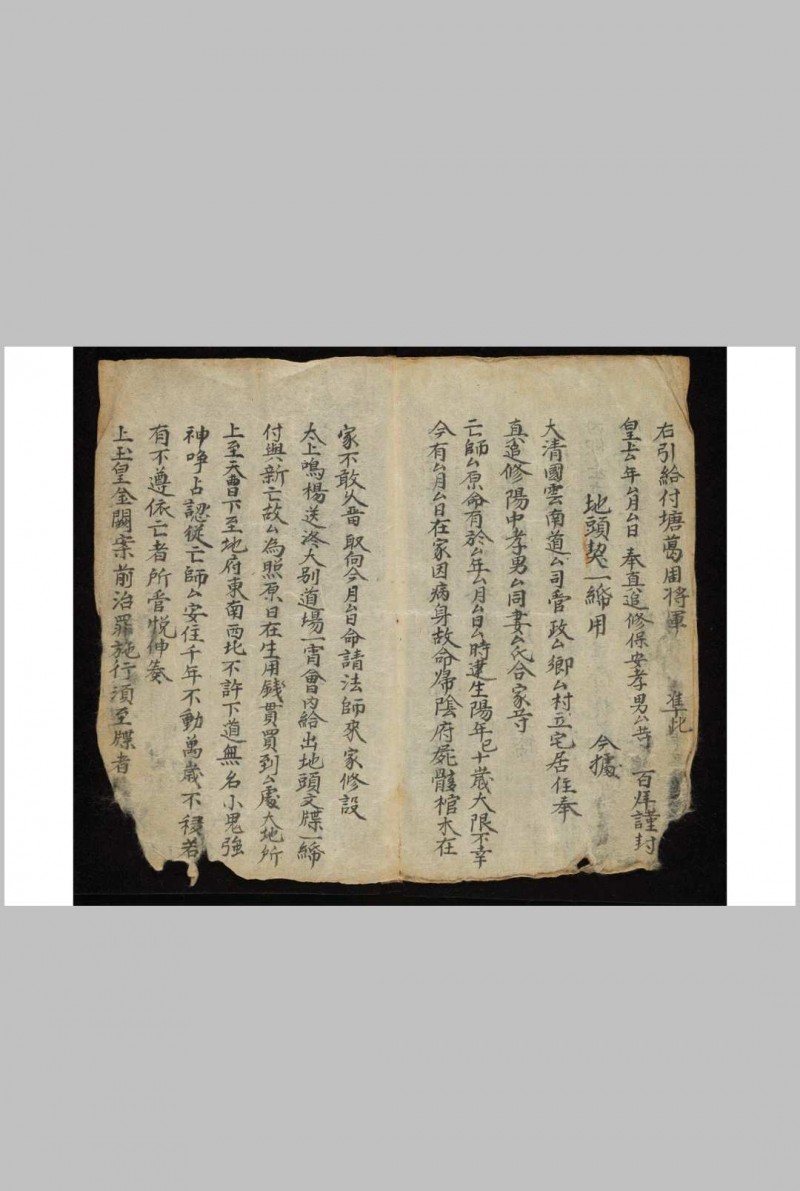 右引給付塘葛周将軍　準此
皇上厶年厶月厶日　奉真追修保安孝男厶等　百拜謹封
地頭契一締用　今據
大清國雲南道厶司管政厶鄉厶村立宅居住奉
真追修陽中孝男厶同妻厶氏合家等
亡師厶原命有於厶年厶月厶日厶時建生陽年巳十歲大限不幸
今有厶月厶日在家因病身故命歸陰府屍骸棺木在
家不敢久畱取向今月厶日命請法師來家修設
太上鳴楊送終大别道場一宵會內給出地頭文牒一締
付與新亡故厶為照原日在生用錢貫買到厶處大地所
上至天曹下至地府東南西北不許下道無名小鬼強
神爭占認從亡師厶安住千年不動萬歲不移若
有不遵依亡者所管悦伸奏
上玉皇金闕案前治罪施行須至牒者